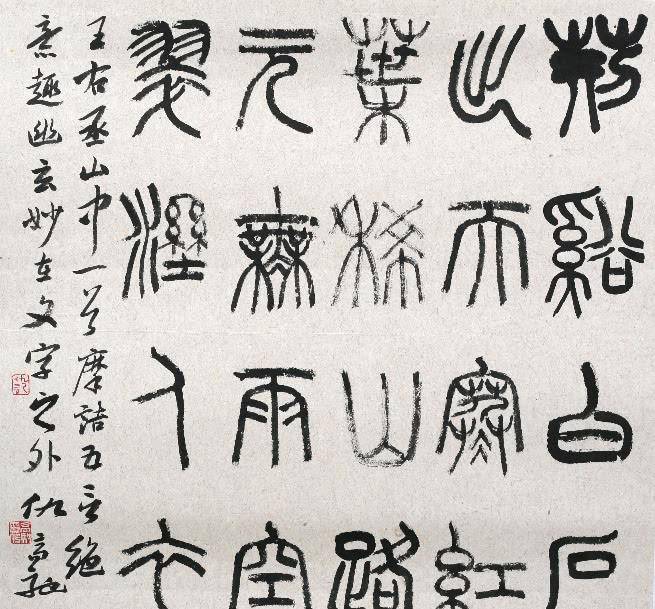 荊谿白石
出天寒紅
葉稀山路
元無雨空
翠溼人衣
王右丞山中一首摩詰五言絕
意趣幽玄妙在文字之外仇高馳